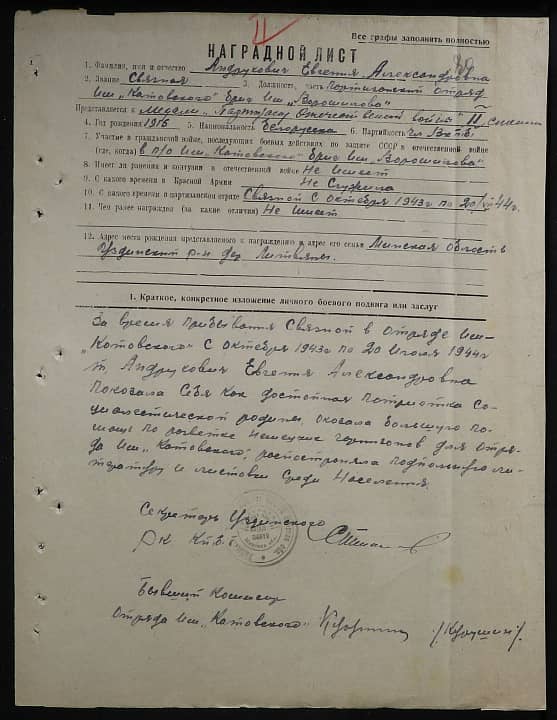 II
Все графы заполнить полностью
НАГРАДНОЙ ЛИСТ
1. Фамилия, имя и отчество Андрукович Евгения Александровна
2. Звание Связная 3. Должность, часть Партизанский отряд
им „Котовского" бриг им „Ворошилова"
Представляется к Медали „Партизану Отечествен войны" II степени
4. Год рождения 1916 5. Национальность Белорусска 6. Партийность
7. Участие в гражданской войне, последующих боевых действиях по защите СССР в отечественной войне
(где, когда) в п/о им „Котовского" бриг им „Ворошилова"
8. Имеет ли ранения и контузии в отечественной войне Не имеет
9. С какого времени в Красной Армии Не служила
10. С какого времени в партизанском отряде Связной с октября 1943г по 20/VII 44г.
11. Чем ранее награжден (за какие отличия) Не имеет
12. Адрес места рождения представляемого к награждению и адрес его семьи Минская область
Узденский р-н дер. Литвяны.
1. Краткое, конкретное изложение личного боевого подвига или заслуг
За время прибывания Связной в отряде им-
„Котовского" с октября 1943г по 20 июля 1944г
т. Андрукович Евгения Александровна
показала себя как достойная патриотка Со-
циалистической родины, оказала большую по-
мощь по разветке немецких гарнизонов для отря-
да им „Котовского", роспостроняла подпольную ли-
тературу и листовки среди населения.
Секретарь Узденского
РК КП(б)Б
Бывший комиссар
отряда им „Котовского"